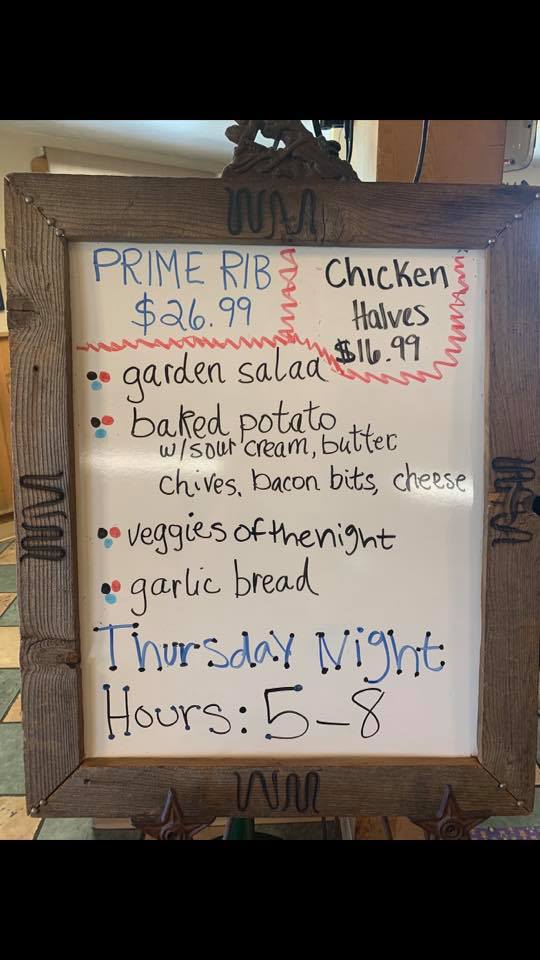 PRIME RIB
$26.99
Chicken
Halves
$16.99
garden salad
baked potato
w/sour cream, butter
chives, bacon bits, cheese
veggies of the night
garlic bread
Thursday Night
Hours: 5-8